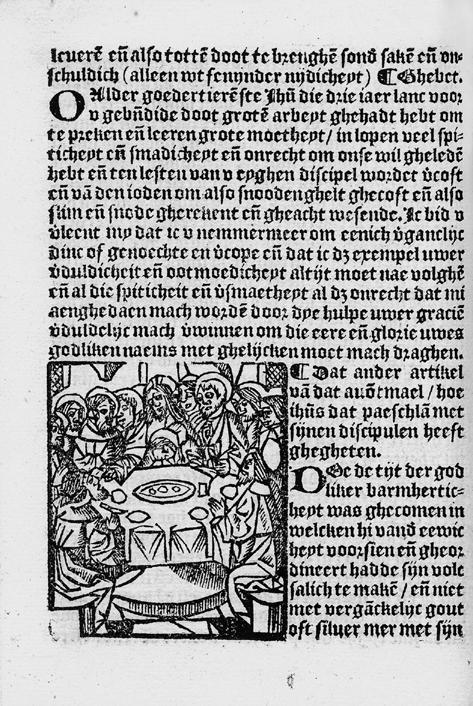 leverē eñ also tottē doot te brenghē sond̄ sakē eñ on-
schuldich (alleen wt fenynder nydicheyt) ¶ Ghebet.
O Alder goedertierēste Jhū die drie iaer lanc voor
v gebn̄dide doot grotē arbeyt ghehadt hebt om
te preken eñ leeren grote moetheyt / in lopen veel spi-
ticheyt eñ smadicheyt eñ onrecht om onse wil gheledē
hebt eñ ten lesten van v eyghen discipel wordet v̄coft
eñ vā den ioden om also snooden ghelt ghecoft eñ also
slim eñ snode gherekent eñ gheacht wesende. Ic bid v
v̄leent my dat ic v nemmermeer om eenich v̄ganclijc
dinc of genoechte en v̄cope eñ dat ic dz exempel uwer
v̄duldicheit eñ ootmoedicheyt altijt moet nae volghē
eñ al die spiticheit eñ v̄smaetheyt al dz onrecht dat mi
aenghedaen mach wordē door dye hulpe uwer graciē
v̄duldelijc mach v̄winnen om die eere eñ glorie uwes
godliken naems met ghelijcken moet mach draghen.
¶ Dat ander artikel
vā dat auōtmael / hoe
ihūs dat paeschlā met
sijnen discipulen heeft
ghegheten.
DOe de tijt der god
liker barmhertic-
heyt was ghecomen in
welcken hi vand̄ eewic
heyt voorsien eñ gheor
dineert hadde sijn volc
salich te makē / eñ niet
met vergāckelijc gout
oft silver mer met sijn